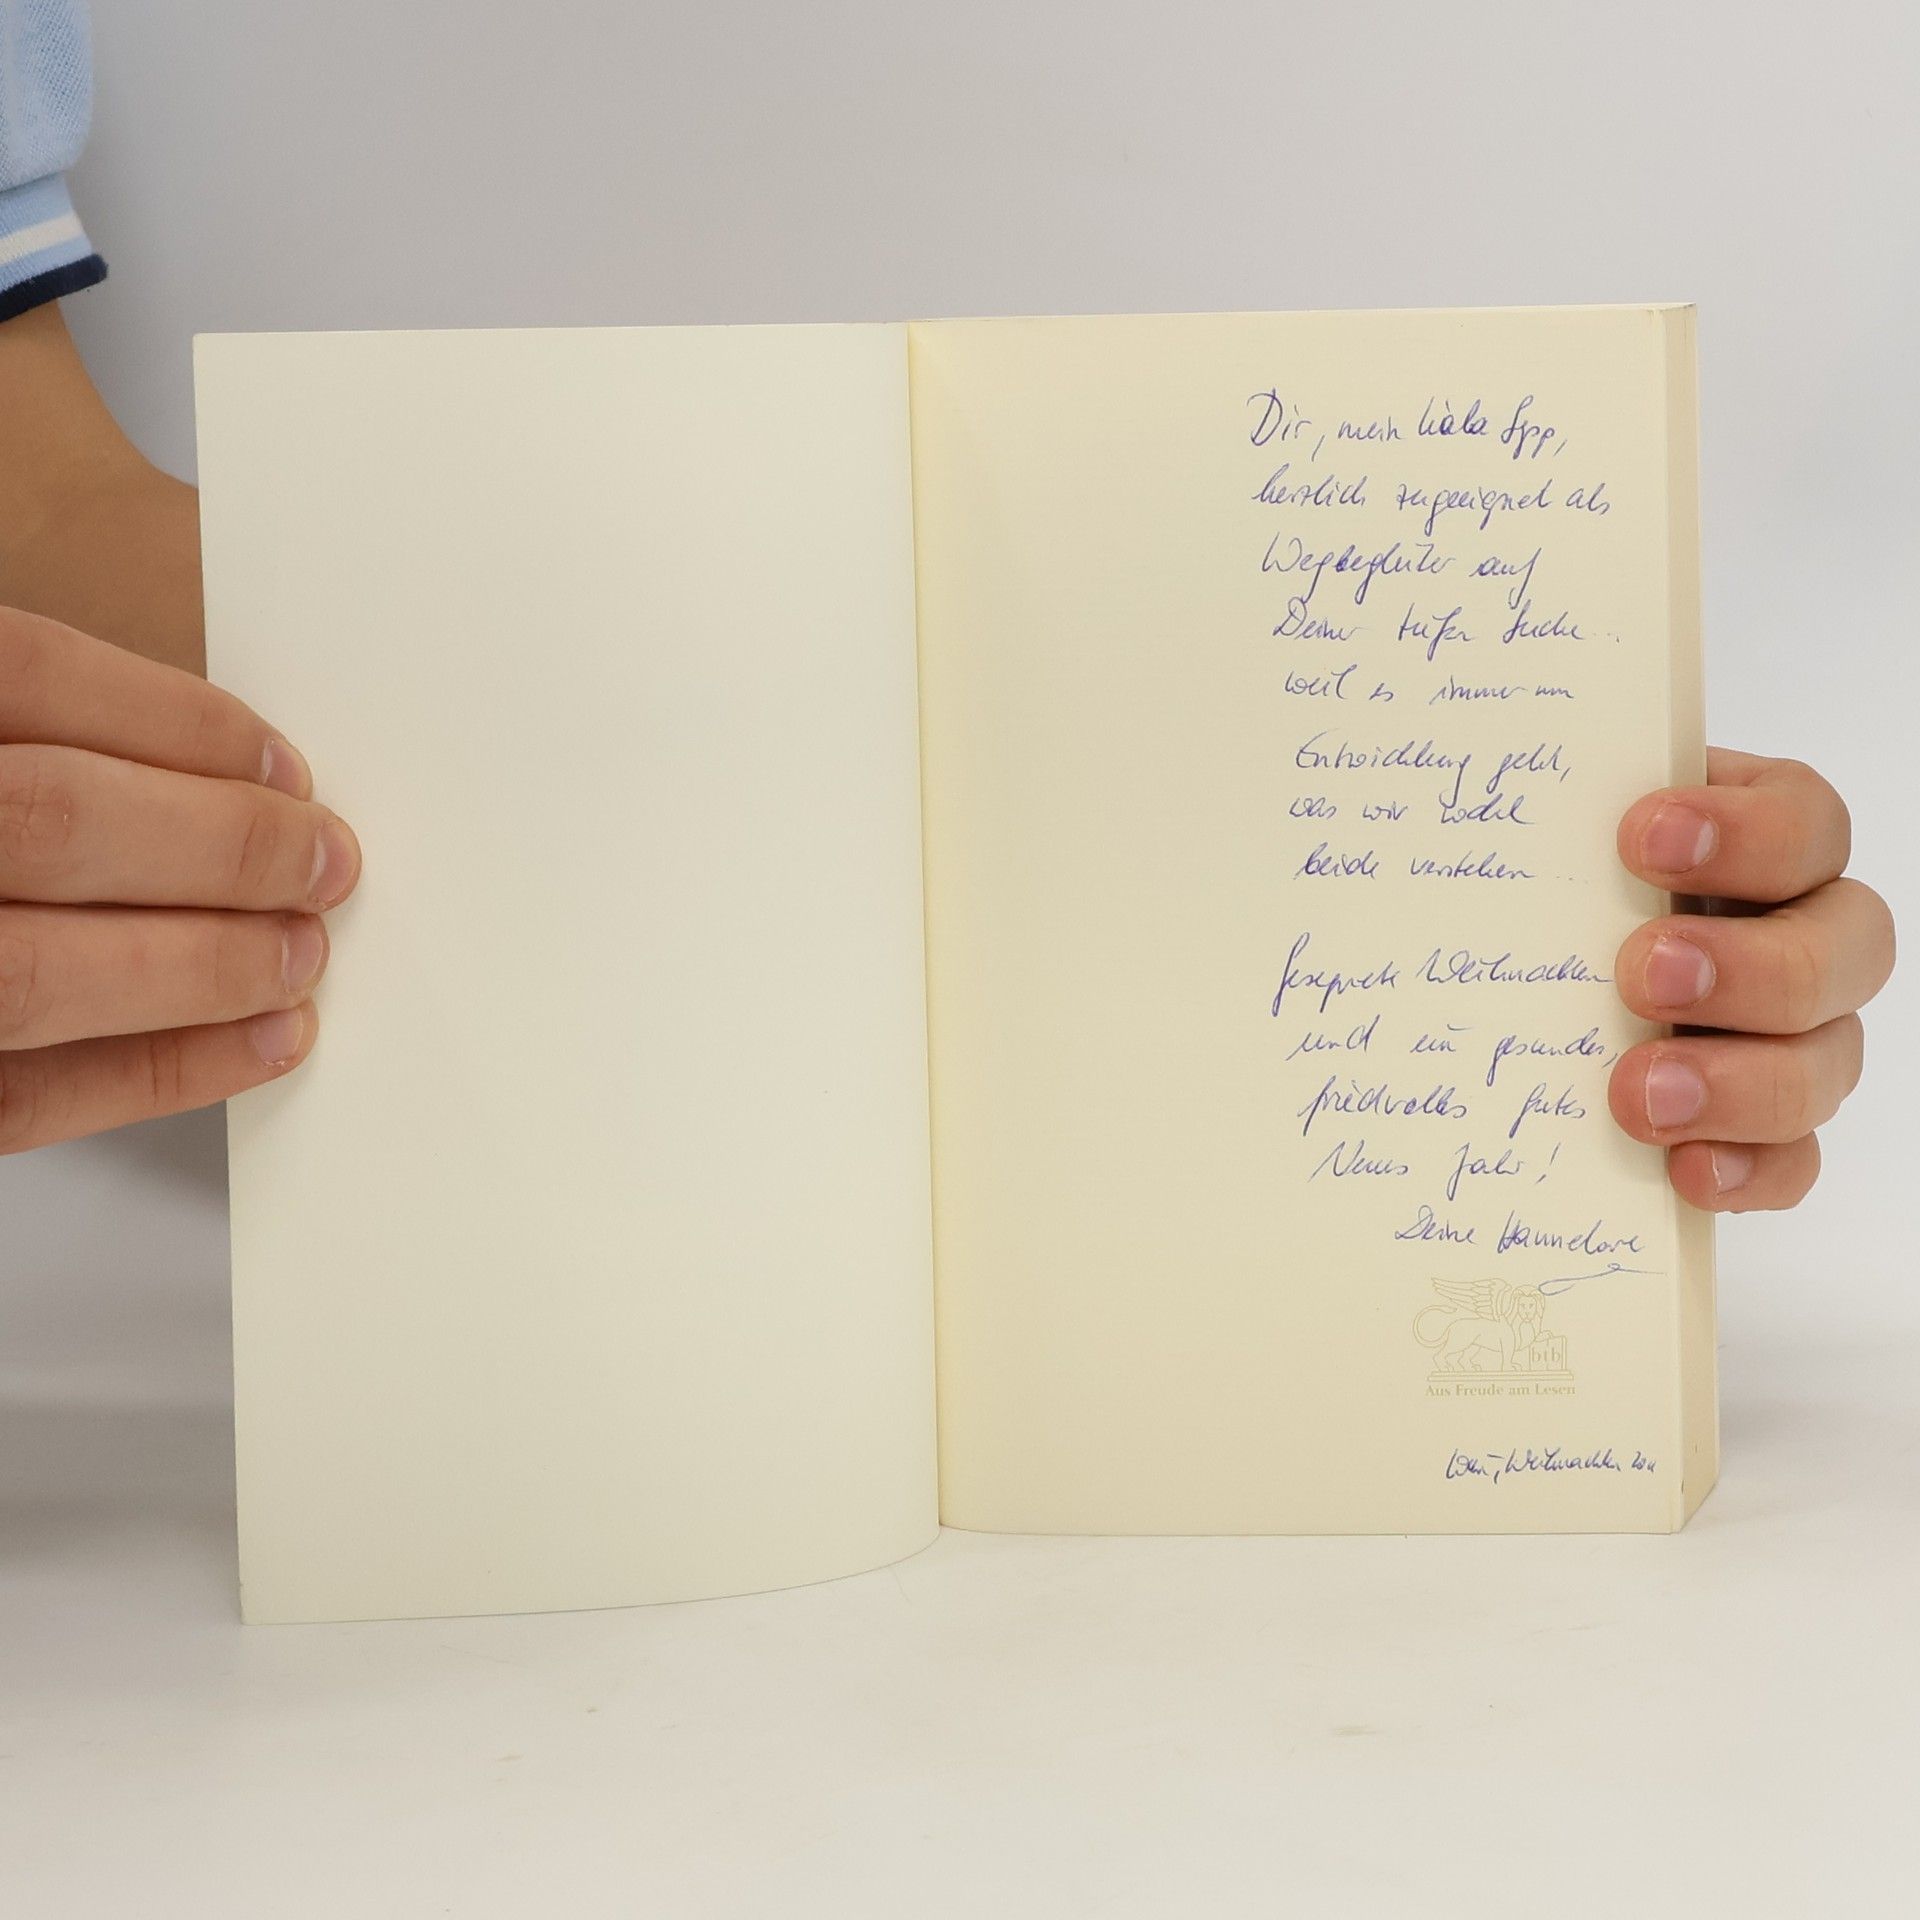 Dir, mein liaba Sepp,
herzlich zugeeignet als
Wegbegleiter auf
Deiner tiefen Suche...
weil es immer um
Entwicklung geht,
was wir wohl
beide verstehen...
Gesegnete Weihnachten
und ein gesundes,
friedvolles gutes
Neues Jahr!
Deine Hannelore
btb
Aus Freude am Lesen
Weihnachten